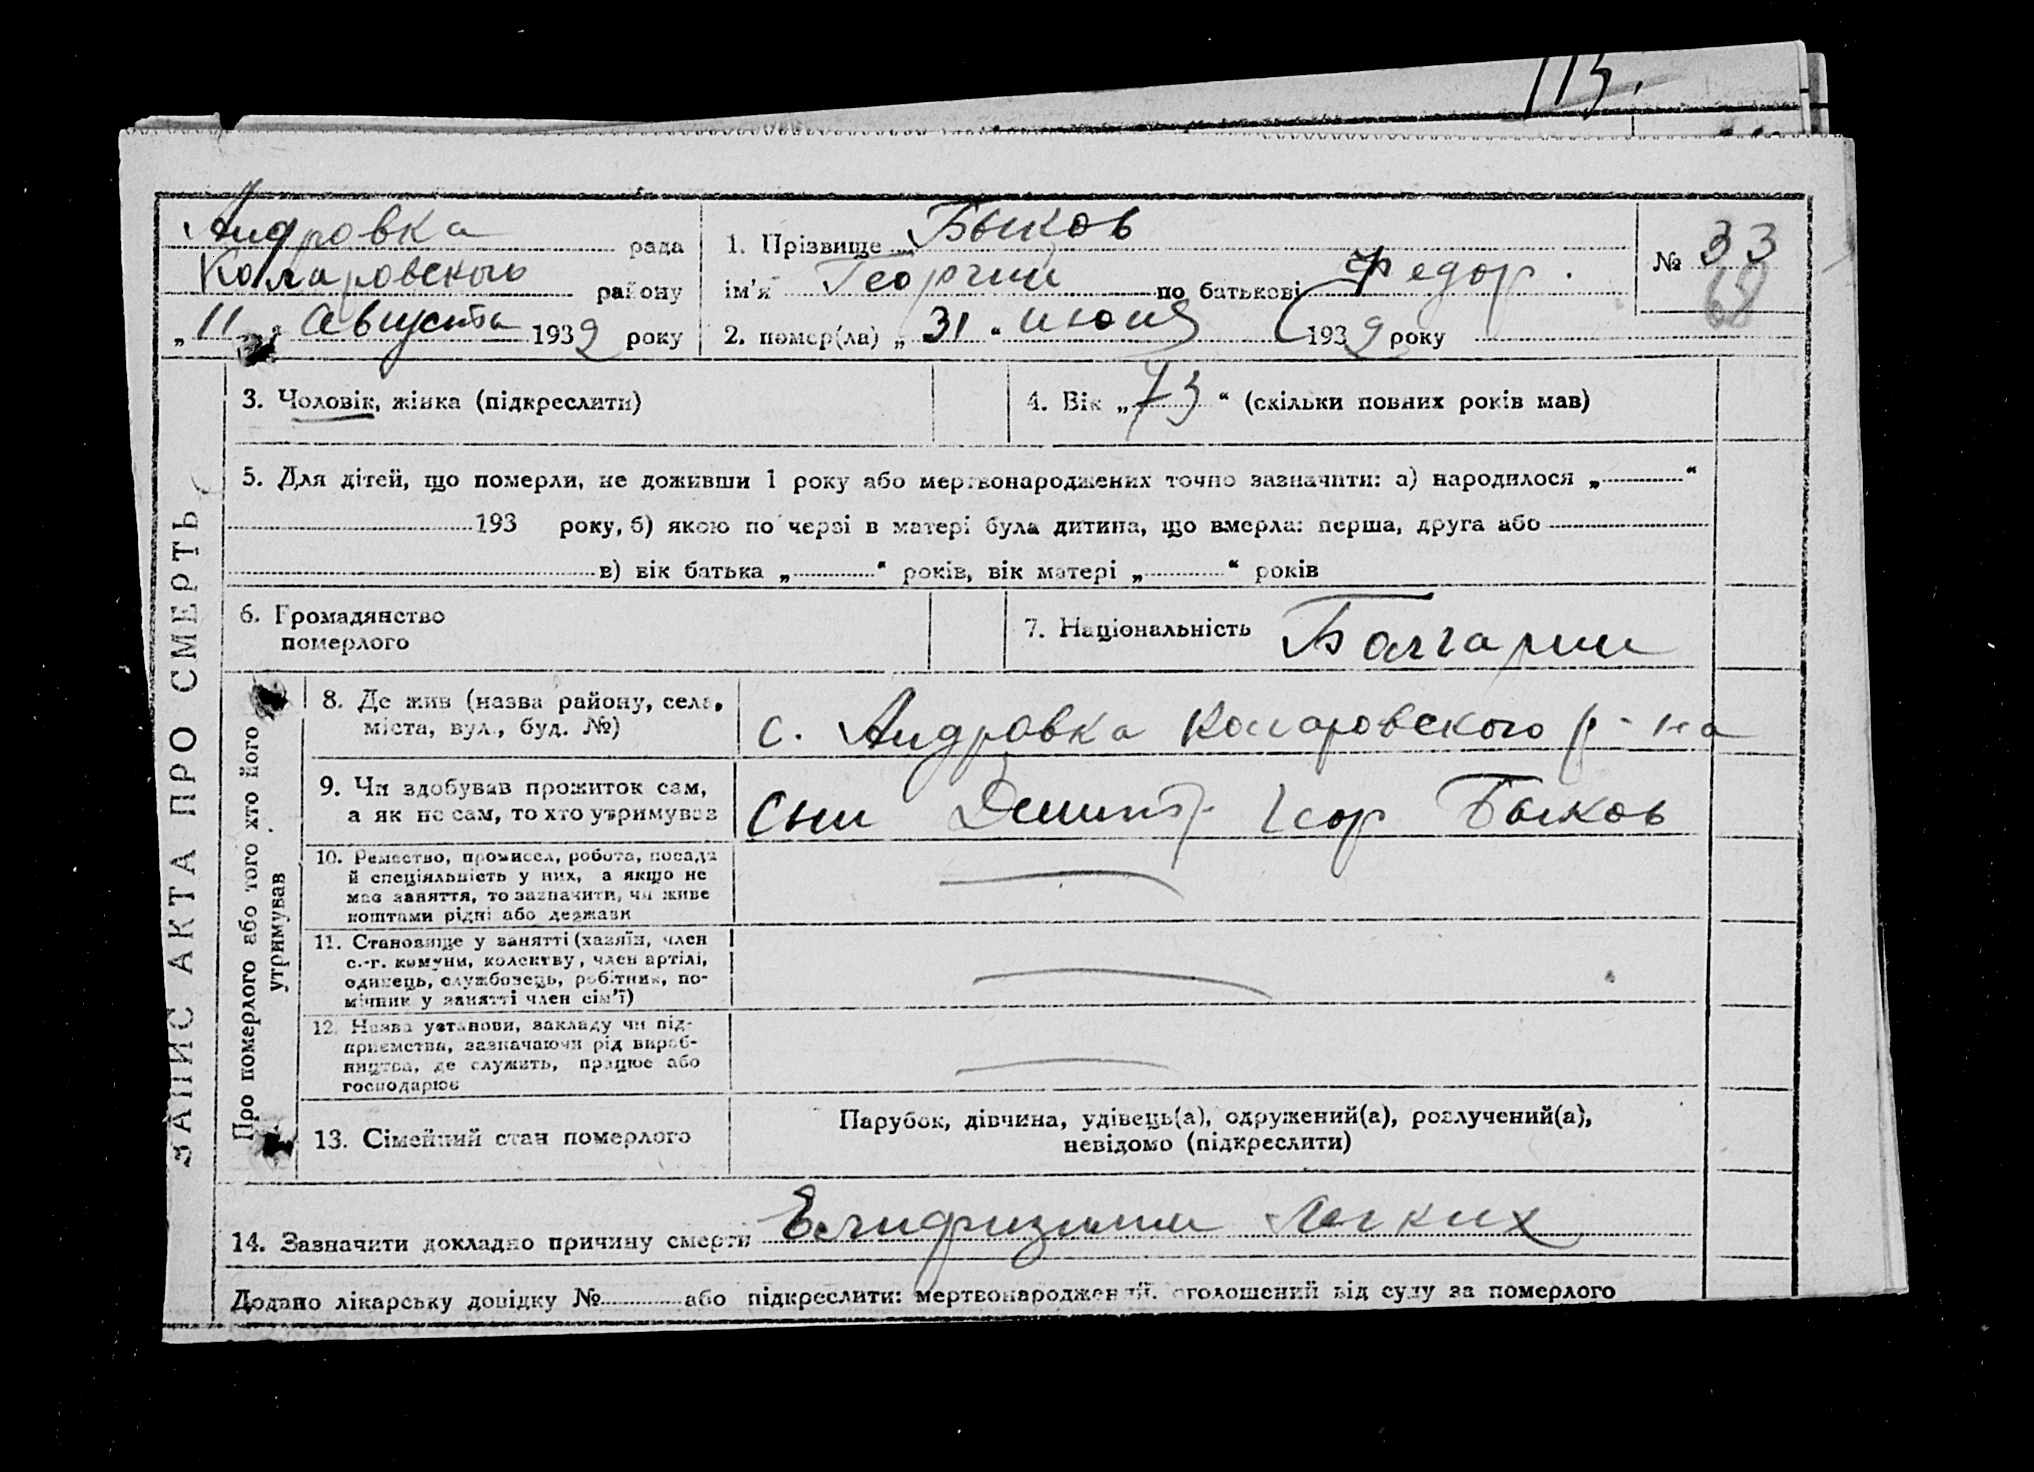 113.
Андровка рада
Коларовского району
„11“ Августа 1939 року
1. Прізвище Быков
ім'я Георгий по батькові Федор.
2. помер(ла) „31“ июля 1939 року
№ 33
68
ЗАПИС АКТА ПРО СМЕРТЬ
3. Чоловік, жінка (підкреслити)
4. Вік „73“ (скільки повних років мав)
5. Для дітей, що померли, не доживши 1 року або мертвонароджених точно зазначити: а) народилося „ “
193 року, б) якою по черзі в матері була дитина, що вмерла: перша, друга або
в) вік батька „ “ років, вік матері „ “ років
6. Громадянство
померлого
7. Національність Болгарин
Про померлого або того хто його
утримував
8. Де жив (назва району, села,
міста, вул., буд. №)
с. Андровка Коларовского р-на
9. Чи здобував прожиток сам,
а як не сам, то хто утримував
Сын Дмитр. Геор Быков
10. Ремество, промисел, робота, посада
й спеціяльність у них, а якщо не
має заняття, то зазначити, чи живе
коштами рідні або держави
11. Становище у занятті (хазяїн, член
с.-г. комуни, колективу, член артілі,
одинець, службовець, робітник, по-
мічник у занятті член сім'ї)
12. Назва установи, закладу чи під-
приємства, зазначаючи рід вироб-
ництва, де служить, працює або
господарює
13. Сімейний стан померлого
Парубок, дівчина, удівець(а), одружений(а), розлучений(а),
невідомо (підкреслити)
14. Зазначити докладно причину смерти легких
Додано лікарську довідку № або підкреслити: мертвонароджений, оголошений від суду за померлого